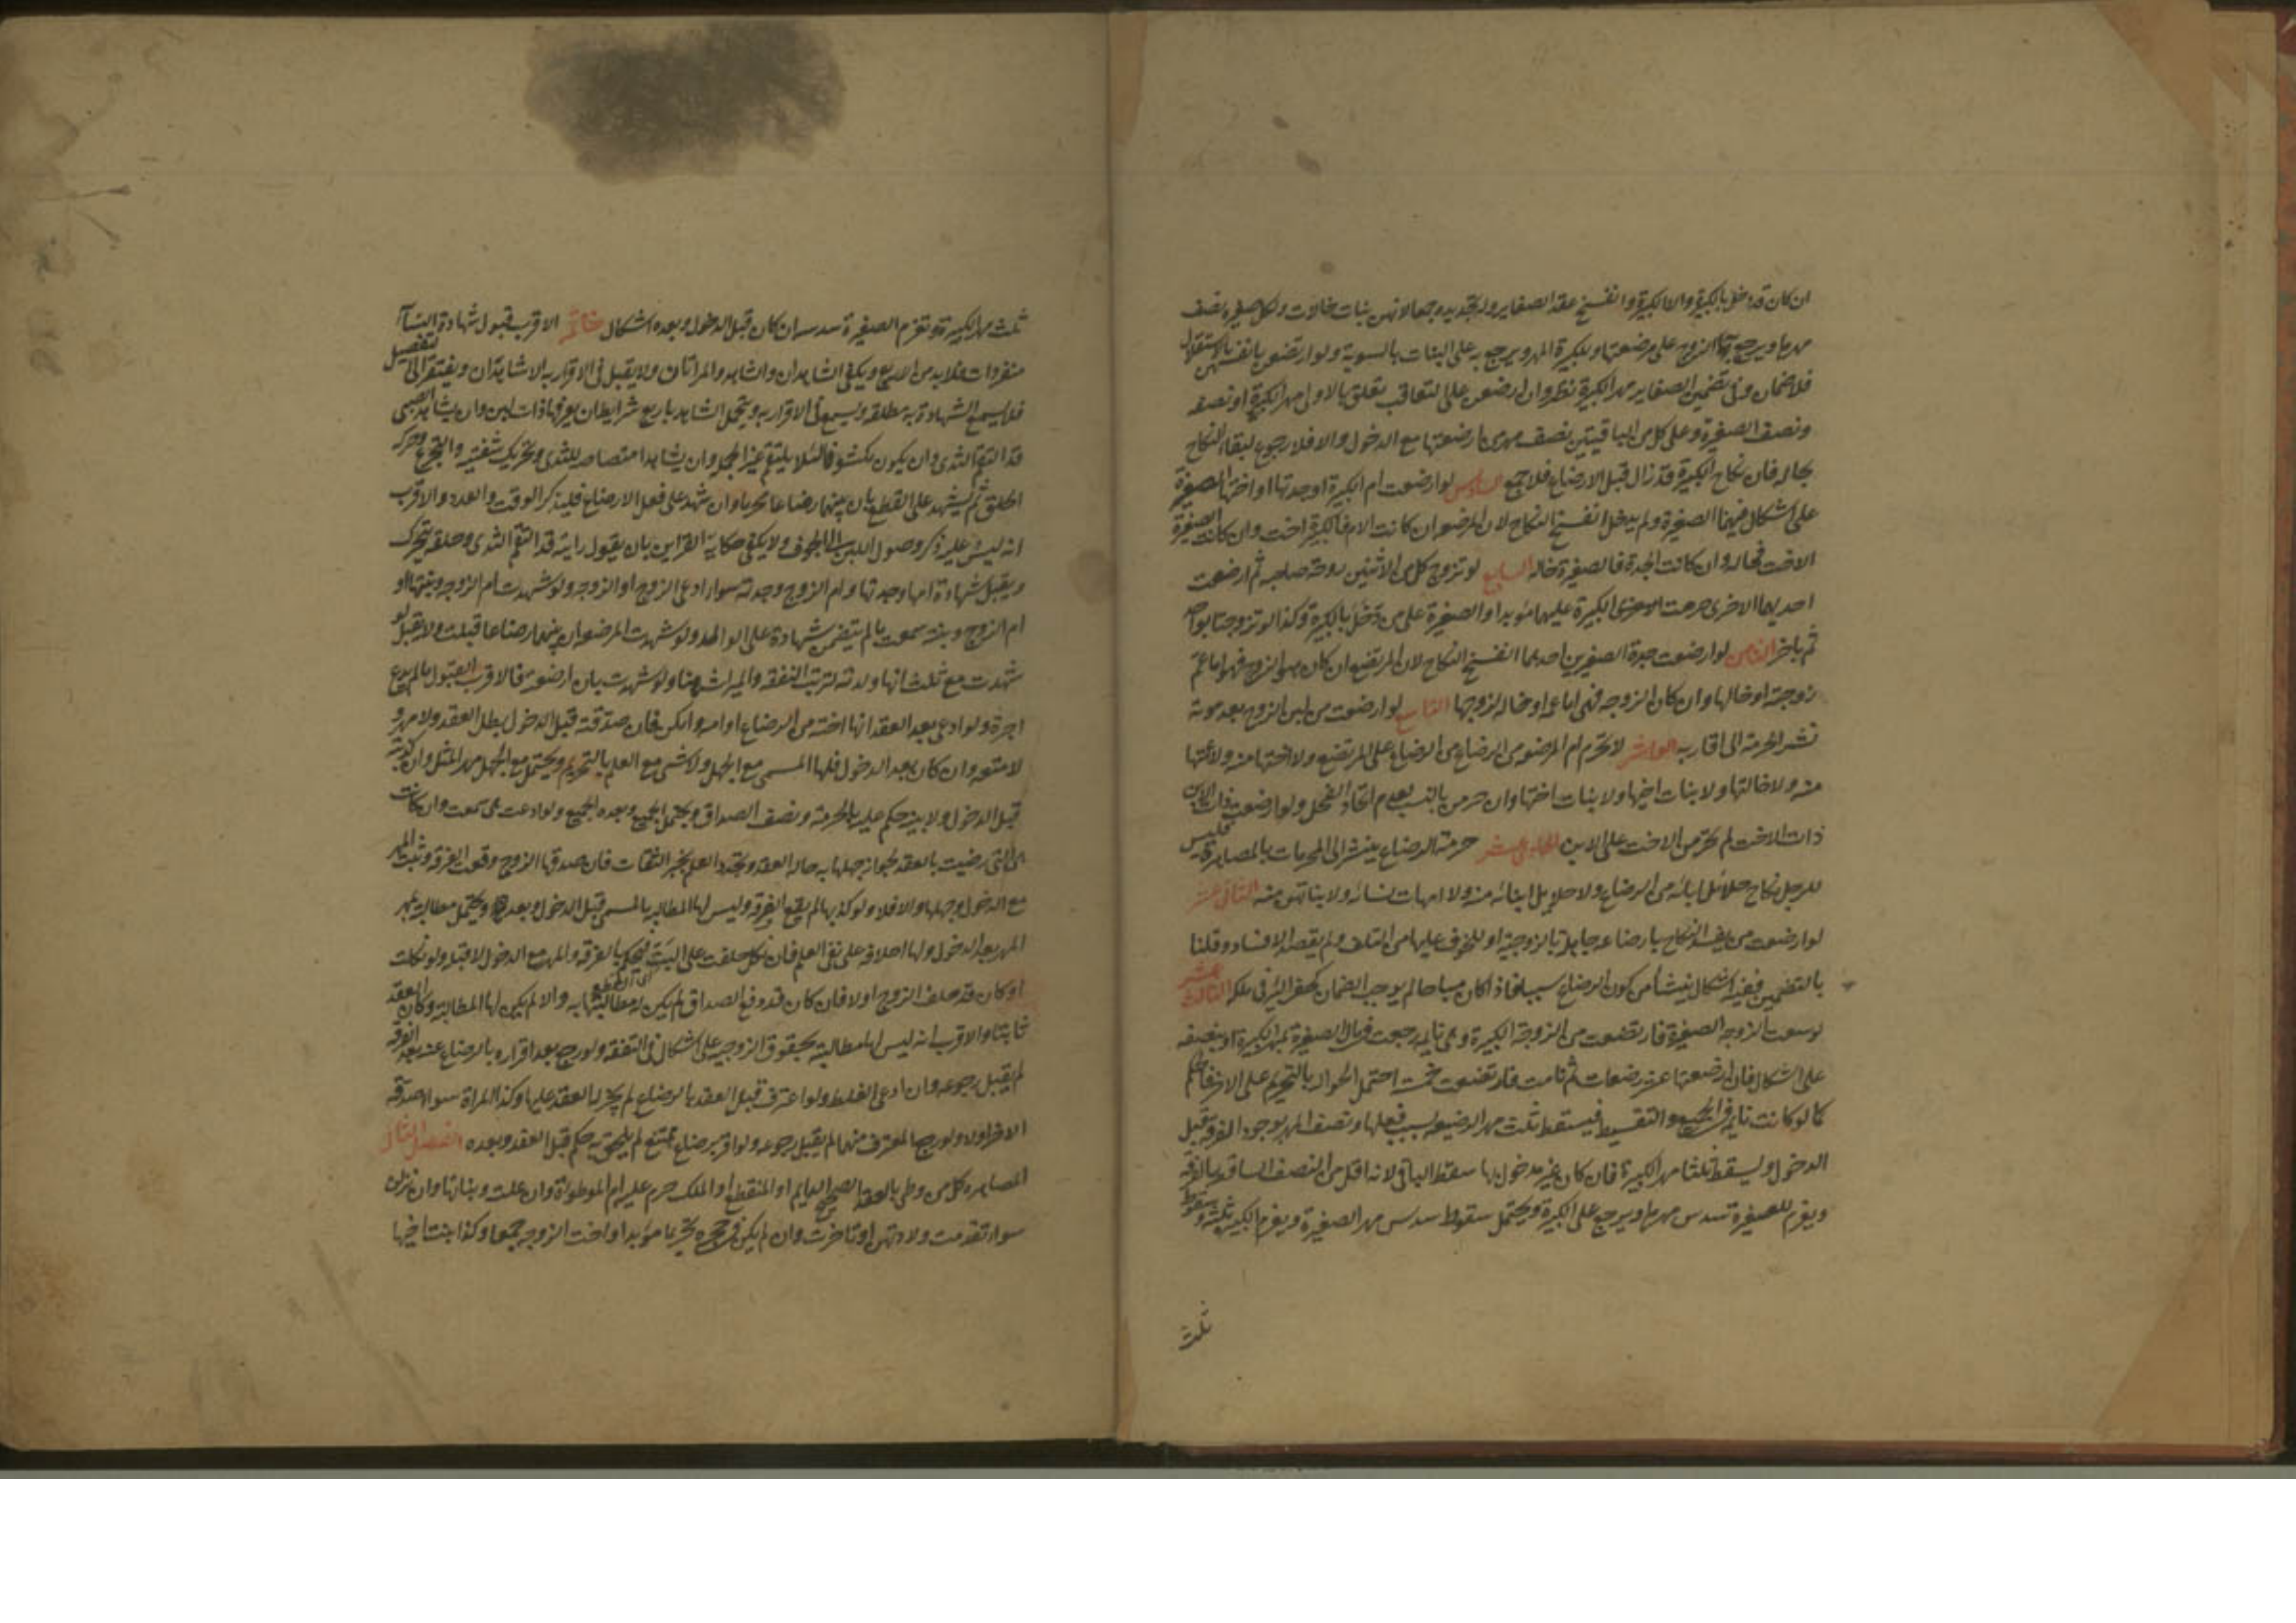 ان كان قد دخل بالكبيرة والا الكبيرة وانفسخ عقد الصغاير وله تجديده جمعا لانهن بنات خالات ولكل صغيرة نصف
مهرها ويرجع به الزوج على مرضعتها وللكبيرة المهر ويرجع به على البنات بالسوية ولو ارتضعن بانفسهن بالاستقلال
فلا ضمان وفي تضمين الصغاير مهر الكبيرة نظر وان ارضعن على التعاقب تعلق بالاولى مهر الكبيرة او نصفه
ونصف الصغيرة وعلى كل من الباقيتين نصف مهر من ارضعتها مع الدخول والا فلا رجوع لبقاء النكاح
بحاله فان نكاح الكبيرة قد زال قبل الارضاع فلا جمع السادس لو ارضعت ام الكبيرة او جدتها او اختها الصغيرة
على اشكال فيهما الصغيرة ولم يدخل انفسخ النكاح لان المرضعة ان كانت الام فالكبيرة اخت وان كانت الصغيرة
الاخت فخالة وان كانت الجدة فالصغيرة خالة السابع لو تزوج كل من الاثنين زوجة صاحبه ثم ارضعت
احديهما الاخرى حرمت الكبيرة عليهما مؤبدا والصغيرة على من دخل بالكبيرة وكذا لو تزوجتا بواحد
ثم باخر الثامن لو ارضعت جدة الصغيرين احدهما انفسخ النكاح لان المرتضع ان كان هو الزوج فهو اما عم
زوجته او خالها وان كان الزوجة فهي اما عمة او خالة لزوجها التاسع لو ارضعت من لبن الزوج بعد موته
نشر الحرمة الى اقاربه العاشر لا تحرم ام المرضعة من الرضاع على المرتضع ولا اختها منه ولا عمتها
منه ولا خالتها ولا بنات اخيها ولا بنات اختها وان حرمن بالنسب لعدم اتحاد الفحل ولو ارضعت ذات الابن
ذات الاخت لم تحرم الاخت على الابن الحادي عشر حرمة الرضاع ينشر الى المحرمات بالمصاهرة فليس
للرجل نكاح حلائل ابائه من الرضاع ولا حلايل ابنائه منه ولا امهات نسائه ولا بناتهن منه الثاني عشر
لو ارضعت من يفسد النكاح بارضاعه جاهلة بالزوجية او للخوف عليها من التلف ولم يقصد الافساد وقلنا
بالتضمين ففيه اشكال ينشأ من كون الرضاع سببا فاذا كان مباحا لم يوجب الضمان كحفر البئر في ملكه الثالث عشر
لو سعت الزوجة الصغيرة فارتضعت من الزوجة الكبيرة وهي نايمة رجعت في مال الصغيرة بمهر الكبيرة او بنصفه
على اشكال فان ارضعتها عشر رضعات ثم نامت فارتضعت خمسا احتمل الحوالة بالتحريم على الاخير فالحكم
كما لو كانت نايمة في الجميع والتقسيط فيسقط ثلث مهر الرضيعة بسبب فعلها ونصف المهر بوجود الفرقة قبل
الدخول ويسقط ثلثا مهر الكبيرة فان كان غير مدخول بها سقط الباقي لانه اقل من النصف الساقط بالفرقة
ويغرم للصغيرة سدس مهرها ويرجع على الكبيرة ويحتمل سقوط سدس مهر الصغيرة ويغرم الكبيرة ثلثه وسقوط
ثلث
ثلث مهر الكبيرة وتغرم الصغيرة سدسه ان كان قبل الدخول وبعده اشكال خاتمة الاقرب قبول شهادة النساء
منفردات فلا بد من الاربع ويكفي الشاهدان والشاهد والمراتان ولا يقبل في الاقرار به الا شاهدان ويفتقر الى التفصيل
فلا يسمع الشهادة به مطلقة ويسمع في الاقرار به ويتحمل الشاهد باربع شرايط ان يعرفها ذات لبن وان يشاهد الصبي
قد التقم الثدي وان يكون مكشوفا لئلا يلتقم غير الحلمة وان يشاهد امتصاصه للثدي وتحريك شفتيه والتجرع وحركة
الحلق ثم يشهد على القطع بان بينهما رضاعا محرما وان شهد على فعل الارضاع فليذكر الوقت والعدد والاقرب
انه ليس عليه ذكر وصول اللبن الى الجوف ولا يكفي حكاية القراين بان يقول رايته قد التقم الثدي وحلقه يتحرك
ويقبل شهادة امها وجدتها وام الزوج وجدته سواء ادعى الزوج او الزوجة ولو شهدت ام الزوجة وبنتها او
ام الزوج وبنته سمعت ما لم يتضمن شهادة على الوالد ولو شهدت المرضعة ان بينهما رضاعا قبلت ولا يقبل لو
شهدت مع ثلث انها ولدته لترتب النفقة والميراث هنا ولو شهدت بان ارضعته فالاقرب القبول ما لم يدع
اجرة ولو ادعى بعد العقد انها اخته من الرضاع او امه وامكن فان صدقته قبل الدخول بطل العقد ولا مهر و
لا متعة وان كان بعد الدخول فلها المسمى مع الجهل ولا شئ مع العلم بالتحريم ويحتمل مع الجهل مهر المثل وان كذبته
قبل الدخول ولا بينة حكم عليه بالحرمة ونصف الصداق ويحتمل الجميع وبعده الجميع ولو ادعت هي سمعت وان كانت
هي التي رضيت بالعقد لجواز جهلها به حالة العقد وتجدد العلم بخبر الثقات فان صدقها الزوج وقعت الفرقة وثبت المهر
مع الدخول وجهلها والا فلا ولو كذبها لم يقع الفرقة وليس لها المطالبة بالمسمى قبل الدخول وبعده ويحتمل مطالبته بمهر
المهر بعد الدخول ولها احلافه على نفي العلم فان نكل حلفت على البت فيحكم بالفرقة والمهر مع الدخول لا قبله ولو نكلت
او كان قد حلف الزوج اولا فان كان قد دفع الصداق لم يكن له مطالبتها به والا لم يكن لها المطالبة وكان العقد
ثابتا والاقرب انه ليس لها مطالبته بحقوق الزوجية على اشكال في النفقة ولو رجع بعد اقراره بالرضاع عنه بعد الفرقة
لم يقبل رجوعه وان ادعى الغلط ولو اعترف قبل العقد بالرضاع لم يجز له العقد عليها وكذا المراة سواء صدقه
الاخر اولا ولو رجع المعترف منهما لم يقبل رجوعه ولو اقر برضاع ممتنع لم يلتحق به حكم قبل العقد وبعده الفصل الثاني
المصاهرة كل من وطى بالعقد الصحيح الدايم او المنقطع او الملك حرم عليه ام الموطوأة وان علت وبناتها وان نزلن
سواء تقدمت ولادتهن او تاخرت وان لم يكن في حجره تحريما مؤبدا واخت الزوجة جمعا وكذا بنت اخيها